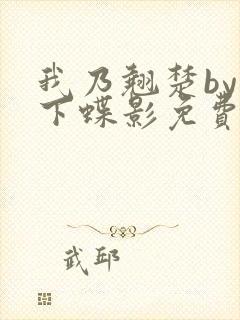 我乃翘楚by
下蝶影免费
武邱